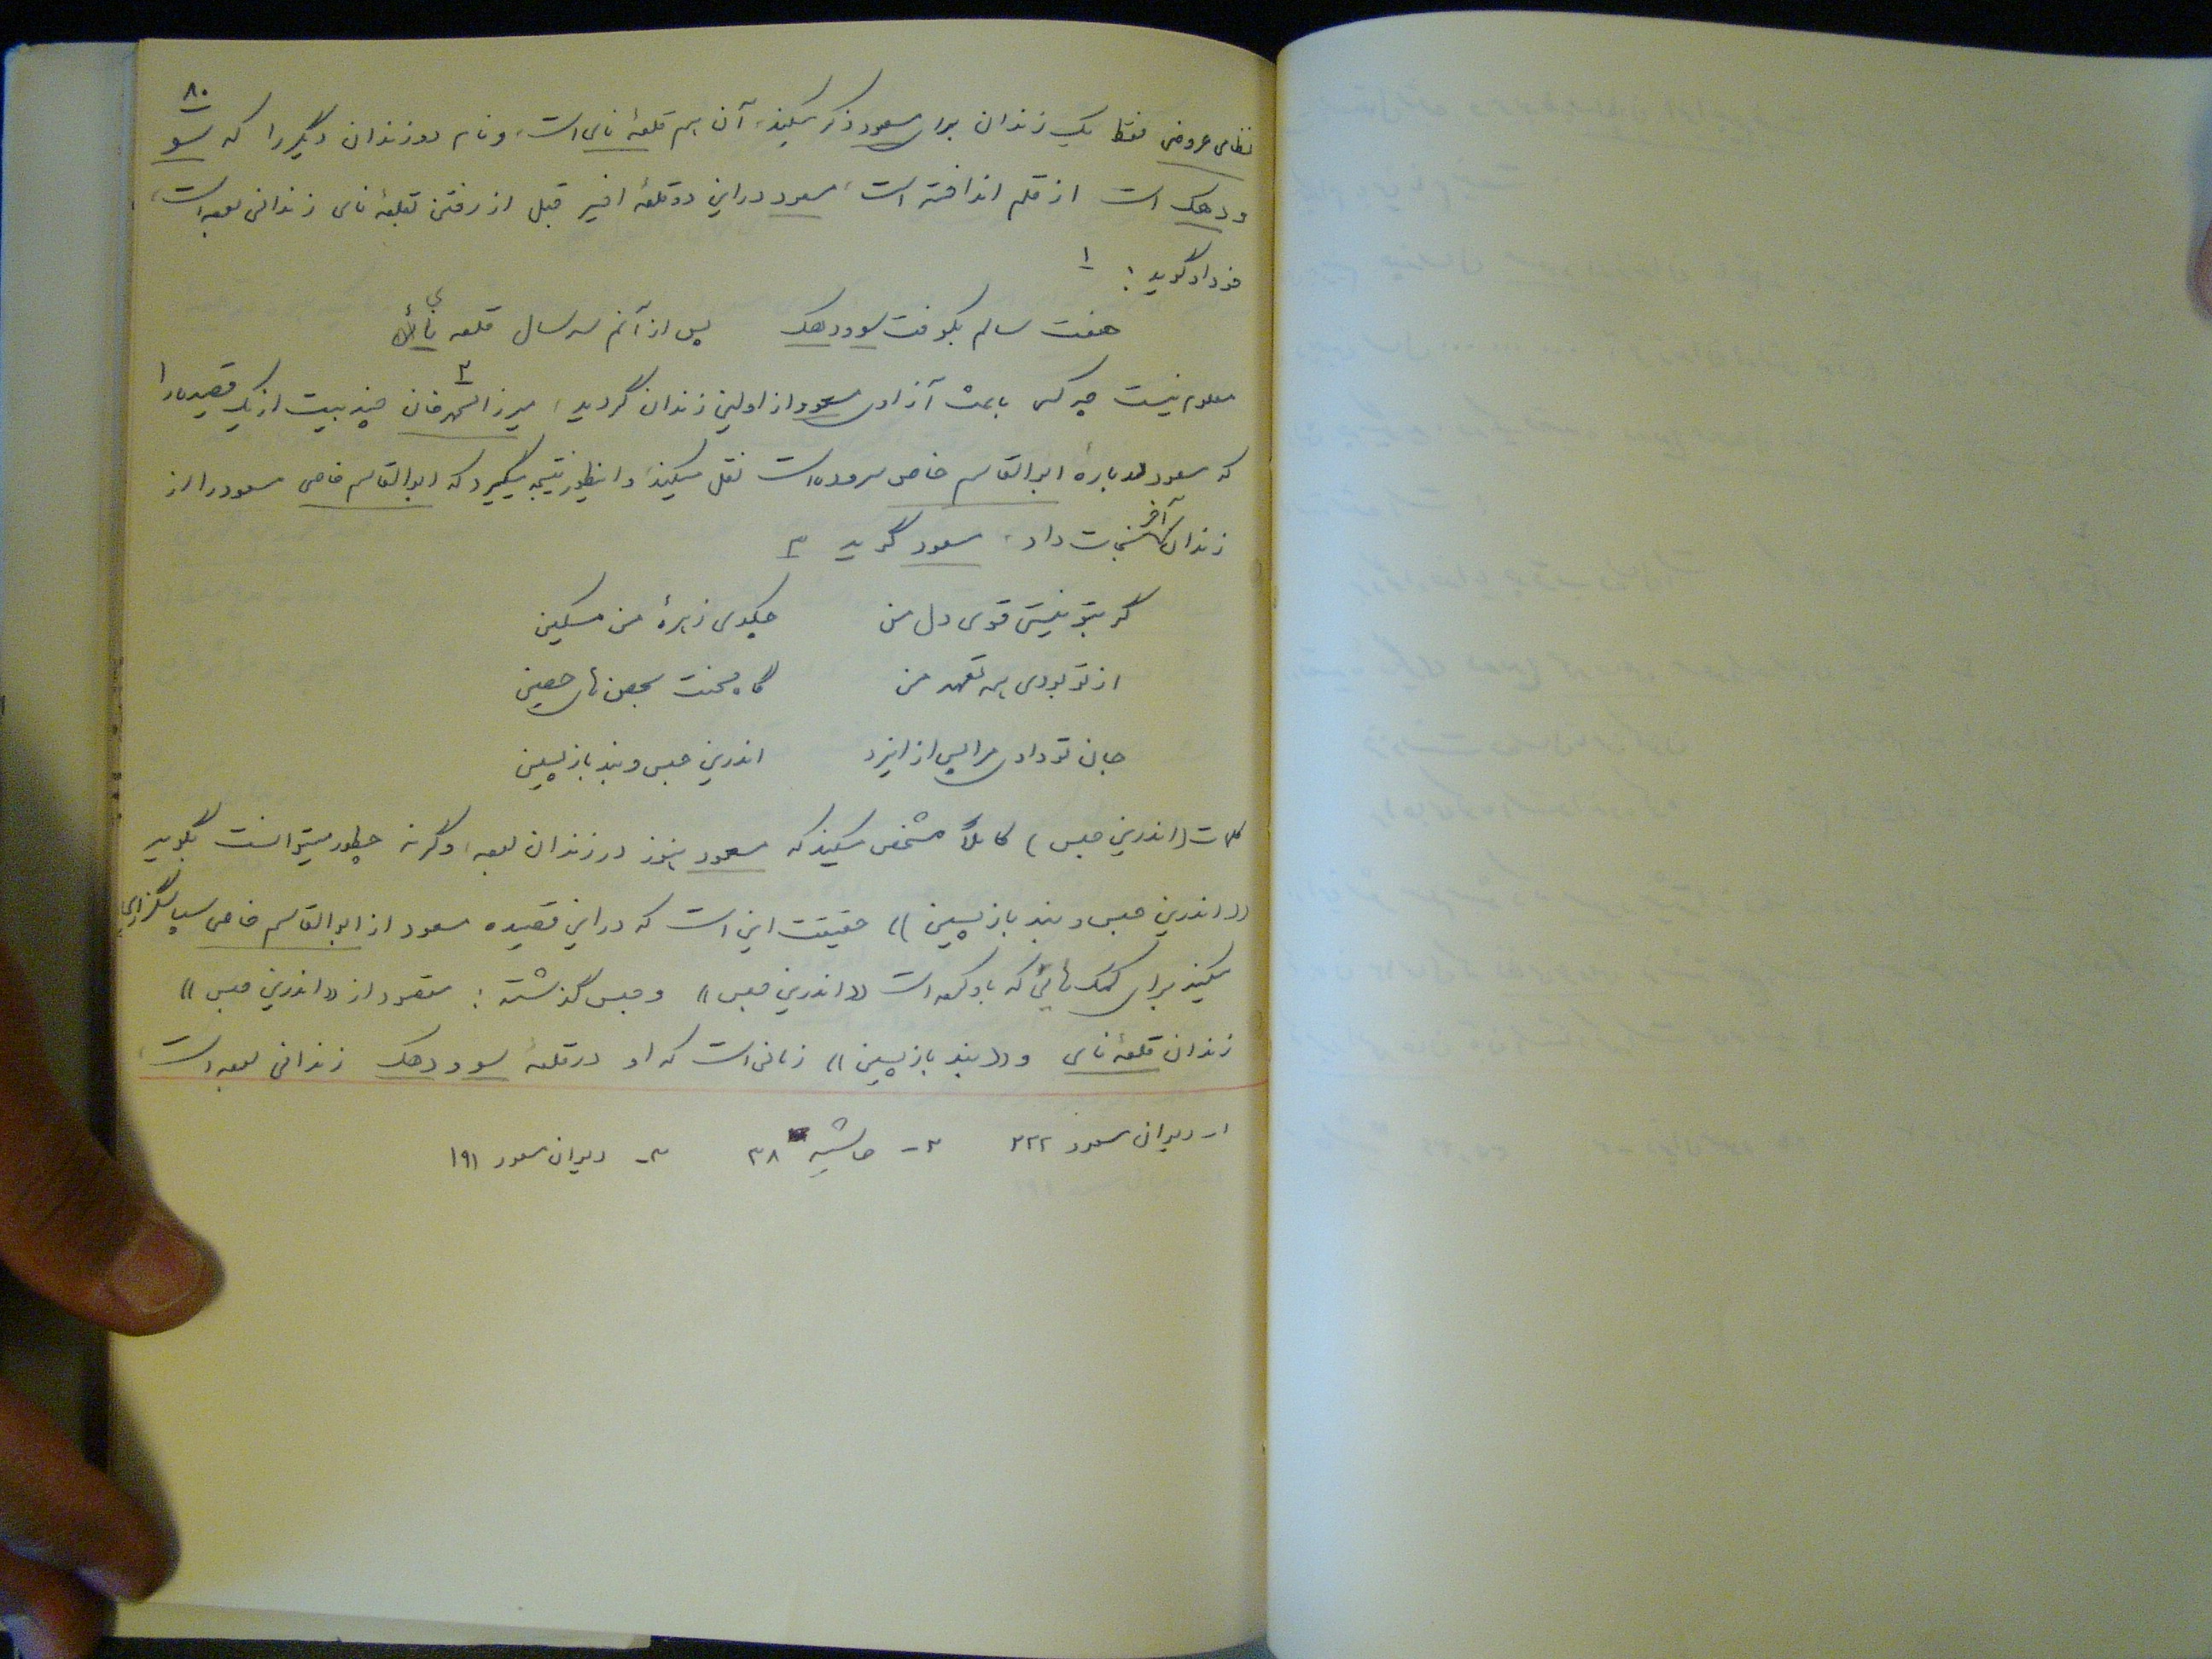 ۸۰
نظامی عروضی فقط یک زندان برای مسعود ذکر میکند، آن هم قلعهٔ نای است، و نام دو زندان دیگر را که سو
و دهک است از قلم انداخته است، مسعود در این دو قلعهٔ اخیر قبل از رفتن بقلعهٔ نای زندانی بوده است،
خود او گوید : ۱
هفت سالم بکوفت سو و دهک پس از آنم سه سال قلعه نای
معلوم نیست چه کسی باعث آزادی مسعود از اولین زندان گردید، میرزا محمدخان ۲ چند بیت از یک قصیده را
که مسعود درباره ابوالقاسم خاص سروده است نقل میکند، و اینطور نتیجه میگیرد که ابوالقاسم خاص مسعود را از
زندان آخر نجات داد، مسعود گوید ۳
گر بتو نیستی قوی دل من چکیدی زهرهٔ من مسکین
از تو بودی همه تعهد من گاه محنت بحصن های حصین
جان تو دادی مرا پس از ایزد اندرین حبس و بند باز پسین
کلمات (اندرین حبس) کاملاً مشخص میکند که مسعود هنوز در زندان بوده، وگرنه چطور میتوانست بگوید
((اندرین حبس و بند باز پسین))، حقیقت این است که در این قصیده مسعود از ابوالقاسم خاص سپاسگزاری
میکند برای کمک هائی که باو کرده است ((اندرین حبس)) و حبس گذشته : مقصود از ((اندرین حبس))
زندان قلعهٔ نای و ((بند باز پسین)) زمانی است که او در قلعهٔ سو و دهک زندانی بوده است،
۱- دیوان مسعود ۳۲۲ ۲- حاشیه ۳۸ ۳- دیوان مسعود ۱۹۱